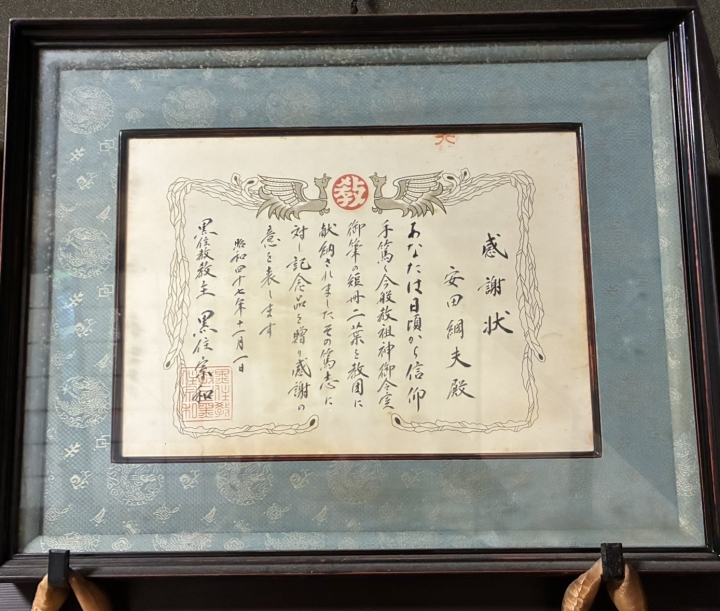 教
感謝状
安田綱夫殿
あなたは日頃から信仰
手篤く今般教祖神御令室
御筆の短冊二葉を教団に
献納されましたその篤志に
対し記念品を贈り感謝の
意を表します
昭和四十七年十一月一日
黒住教教主 黒住宗和